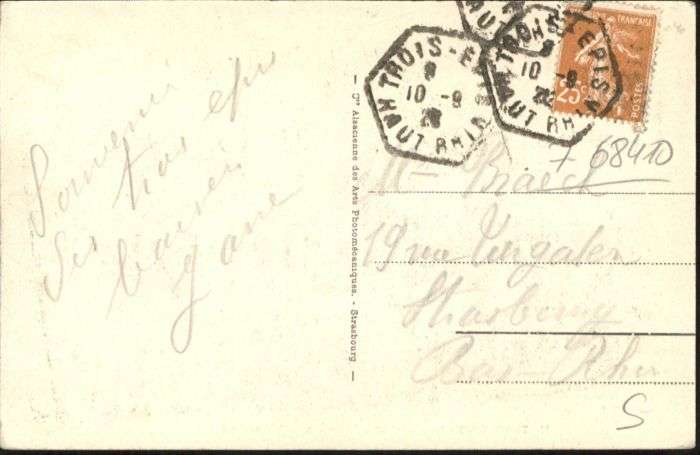 Souvenir
des trois epis
baisers
TROIS-E
8
10 -9
28
HAUT RHIN
TROIS-EPIS
8
10 -9
28
HAUT RHIN
FRANÇAISE
25c
POSTES
68410
Cie Alsacienne des Arts Photomécaniques. - Strasbourg
19 rue
Strasbourg
Bas-Rhin
S